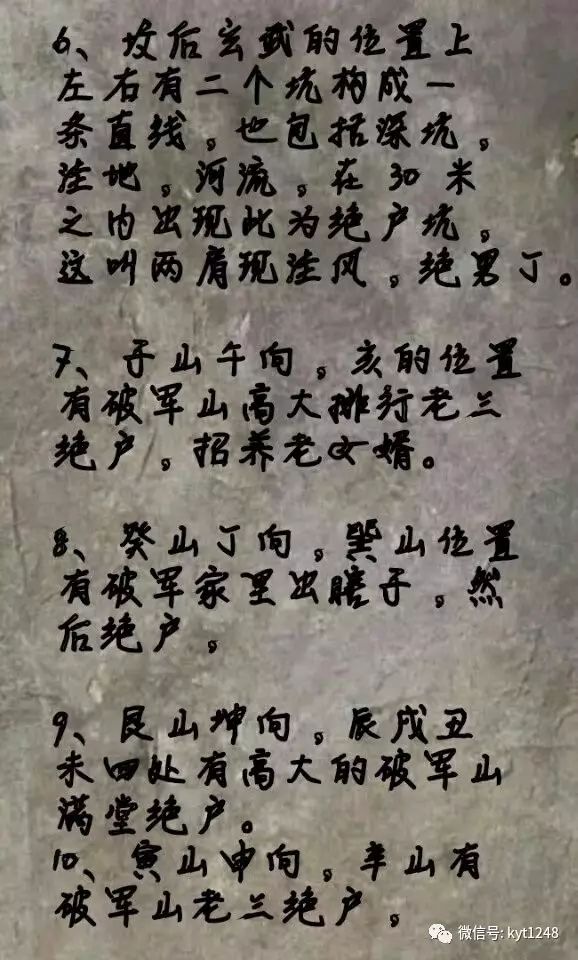 6、坟后玄武的位置上
左右有二个坑构成一
条直线。也包括深坑。
洼地。河流。在30米
之内出现此为绝户坑。
这叫两肩现洼风。绝男丁。
7、子山午向。亥的位置
有破军山高大排行老三
绝户。招养老女婿。
8、癸山丁向。巽山位置
有破军家里出瞎子。然
后绝户。
9、艮山坤向。辰戌丑
未四处有高大的破军山
满堂绝户。
10、寅山申向。辛山有
破军山老三绝户。
微信号: kyt1248